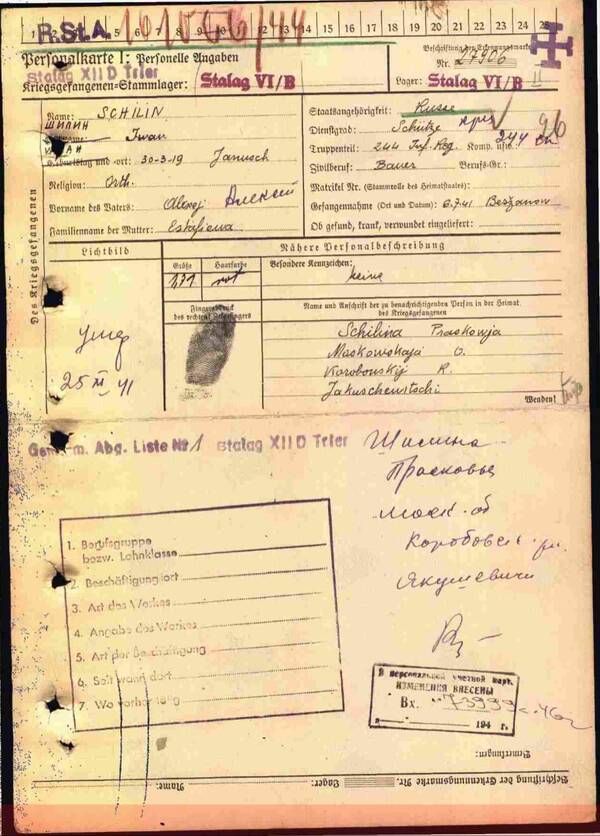 1 5 6 7 8 9 10 11 12 13 14 15 16 17 18 19 20 21 22 23 24 25
R.St.A.
Personalkarte I: Personelle Angaben
Stalag XII D Trier
Kriegsgefangenen-Stammlager: Stalag VI/B
Beschriftung der Erkennungsmarke
Nr. 27906
Lager: Stalag VI/B
Des Kriegsgefangenen
Name: SCHILIN
ШИЛИН
Iwan
Geburtstag und -ort: 30-3-19 Janusch
Religion: Orth.
Vorname des Vaters: Алексей
Familienname der Mutter:
Staatsangehörigkeit: Russe
Dienstgrad: Schütze
Truppenteil: 244 Inf. Reg. Komp. usw.: 244
Zivilberuf: Bauer Berufs-Gr.:
Matrikel Nr. (Stammrolle des Heimatstaates):
Gefangennahme (Ort und Datum): 6.7.41
Ob gesund, krank, verwundet eingeliefert:
Lichtbild
Nähere Personalbeschreibung
Größe Haarfarbe Besondere Kennzeichen:
171 rot keine
Fingerabdruck
des rechten Zeigefingers
Name und Anschrift der zu benachrichtigenden Person in der Heimat
des Kriegsgefangenen
Schilina Praskowja
Moskowskaja O.
Korobowskij R.
Jakuschewitschi
Wenden!
умер
25 XI 41
Abg. Liste Nr. 1 Stalag XII D Trier
Шилина
Прасковья
моск об
Коробовск р.
Якушевичи
1. Berufsgruppe
bezw. Lohnklasse
2. Beschäftigt ort
3. Art des Werkes
4. Angabe des Werkes
5. Art der Beschäftigung
6. Seit wann dort
7. Wo vorher tätig
В персональной учетной карт.
ИЗМЕНЕНИЯ ВНЕСЕНЫ
Вх. 73999с-46г
194 г.
Bemerkungen:
Beschriftung der Erkennungsmarke Nr.
Lager:
Name: